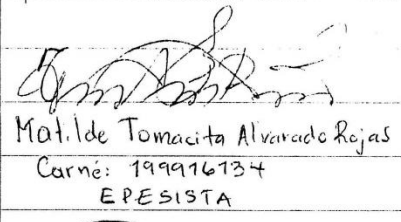 Matilde Tomacita Alvarado Rojas
Carné: 199916734
EPESISTA